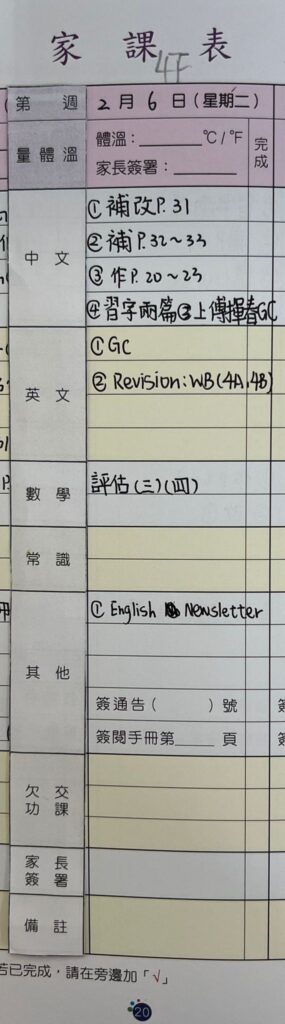 家課表
4F
第 週 2月6日(星期二)
量體溫 體溫：______℃/℉ 完成
家長簽署：______
中文 ①補改P.31
②補P.32~33
③作P.20~23
④習字兩篇⑤上傳揮春GC
英文 ①GC
② Revision: WB(4A,4B)
數學 評估(三)(四)
常識
其他 ① English Newsletter
簽通告( )號
簽閱手冊第____頁
欠交功課
家長簽署
備註
若已完成，請在旁邊加「√」
20